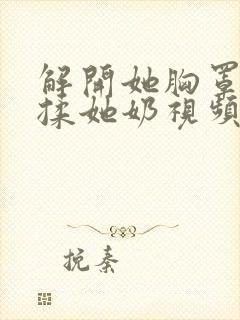 解開她胸罩
揉她奶視頻
挽秦